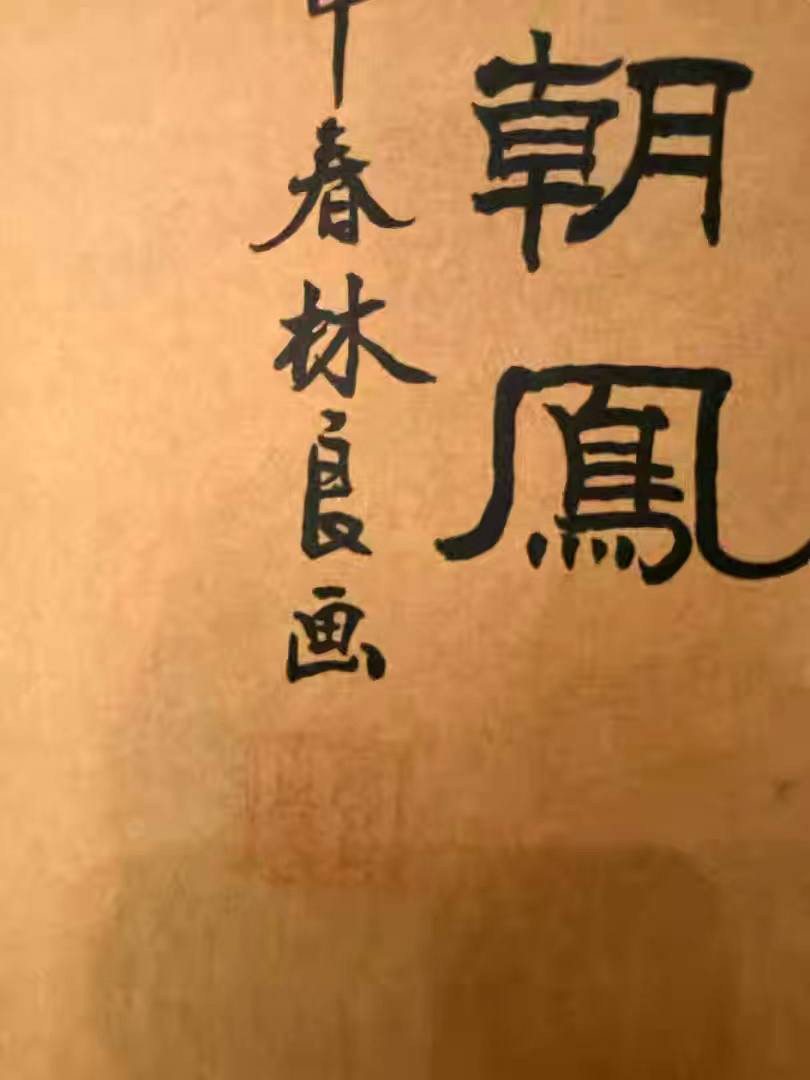 朝鳳
春林良画